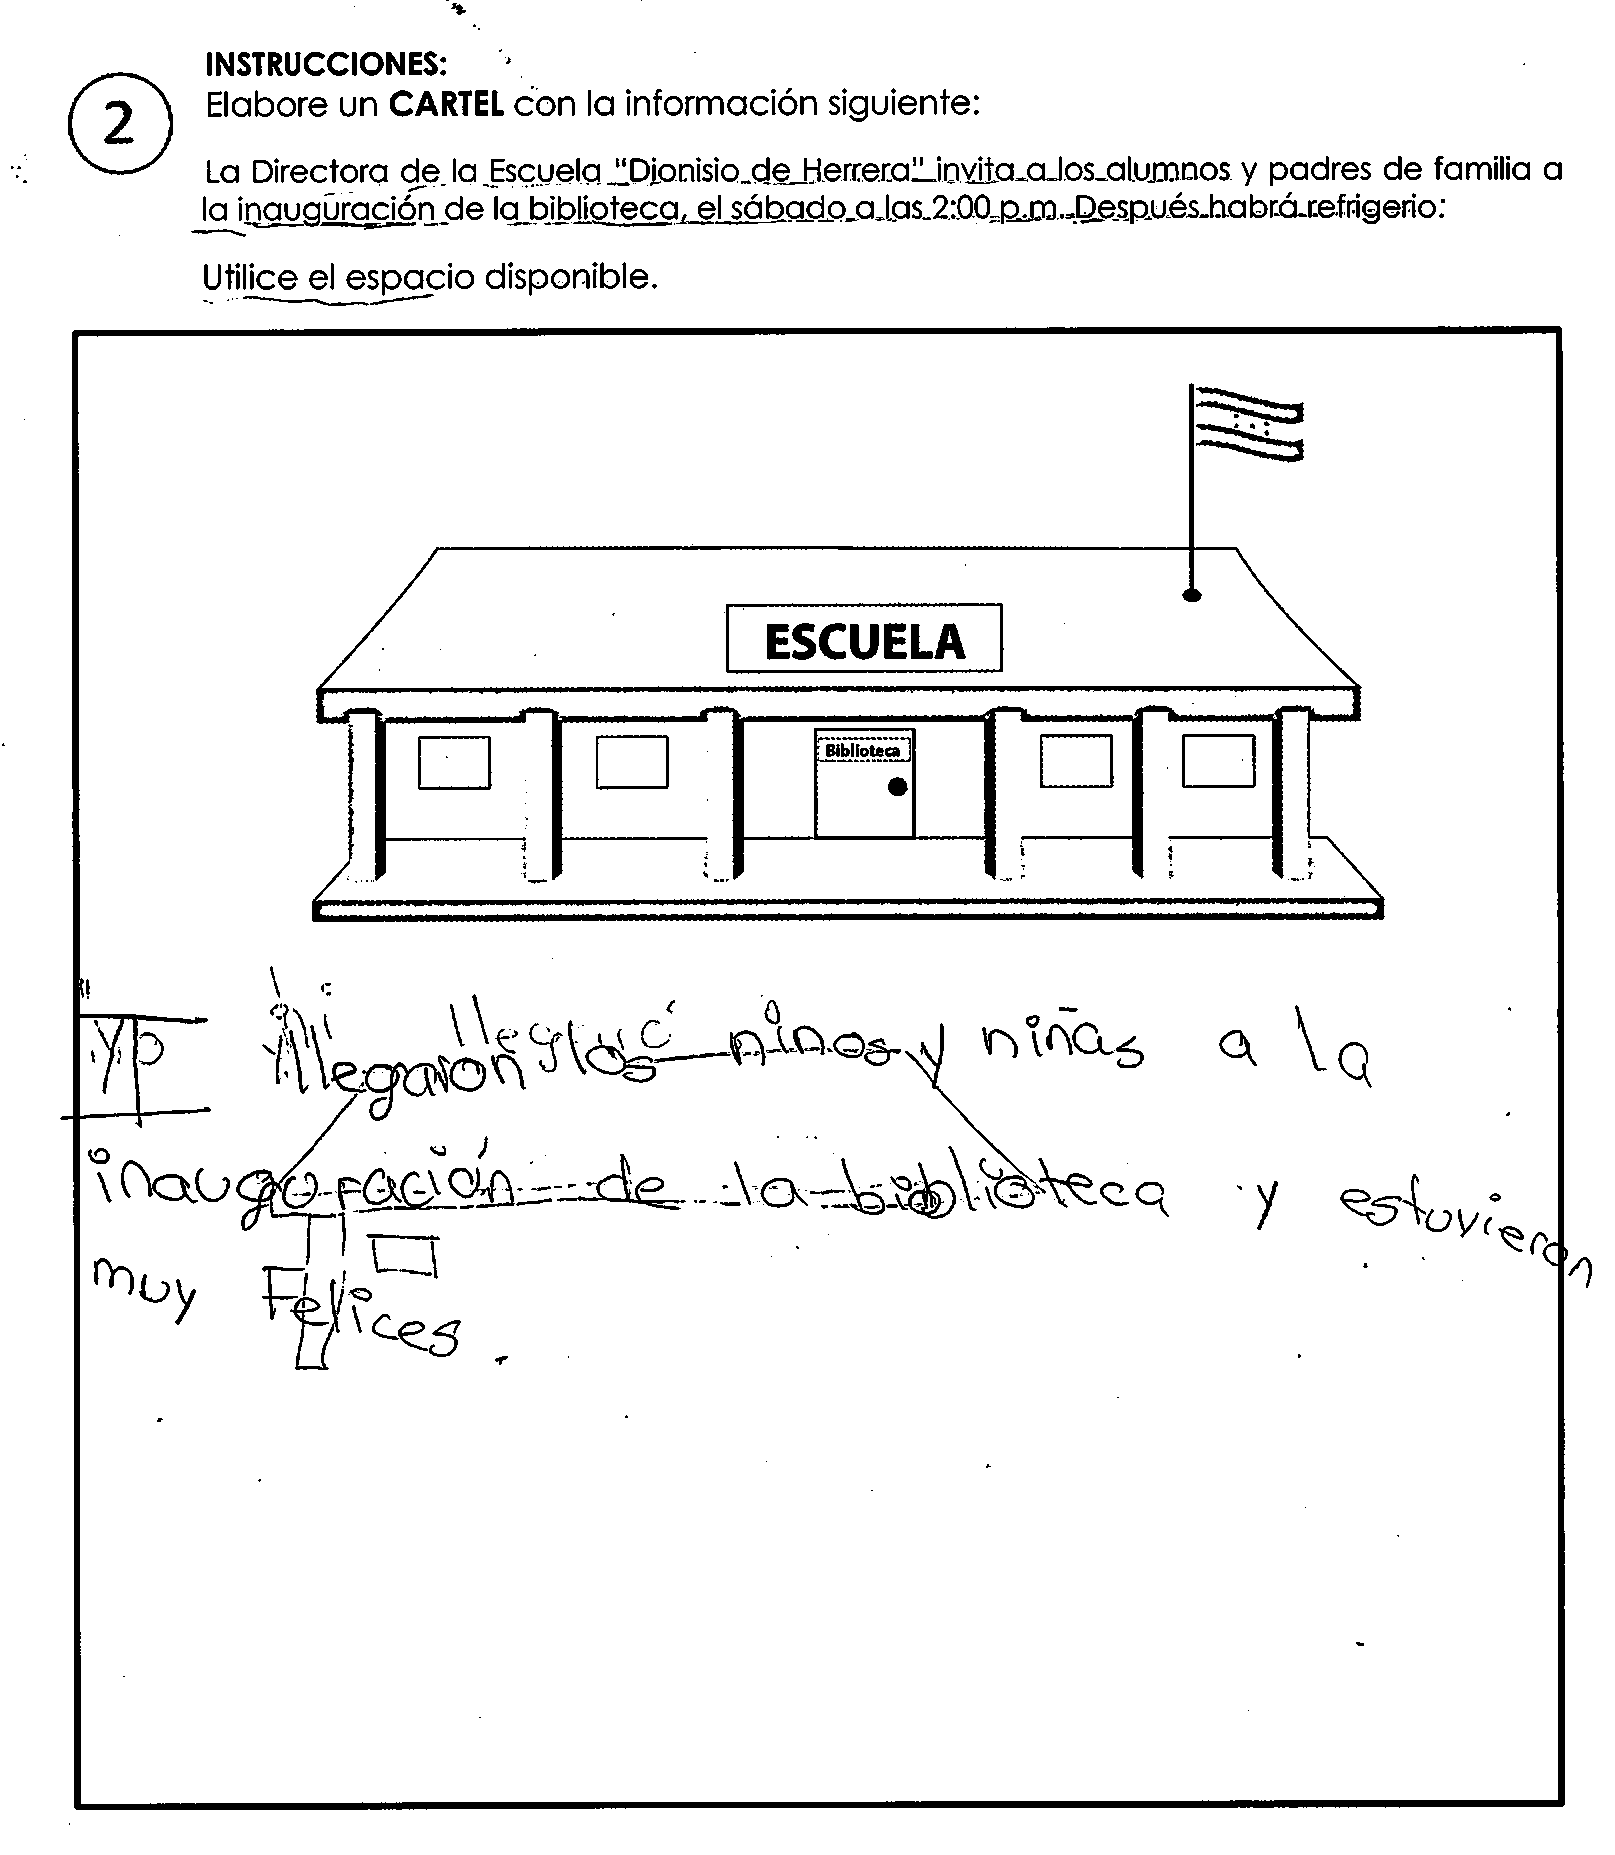 INSTRUCCIONES:
2
Elabore un CARTEL con la información siguiente:
La Directora de la Escuela "Dionisio de Herrera" invita a los alumnos y padres de familia a
la inauguración de la biblioteca, el sábado a las 2:00 p.m. Después habrá refrigerio:
Utilice el espacio disponible.
ESCUELA
Biblioteca
llegaron los niños y niñas a la
inauguración de la biblioteca y estuvieron
muy Felices.